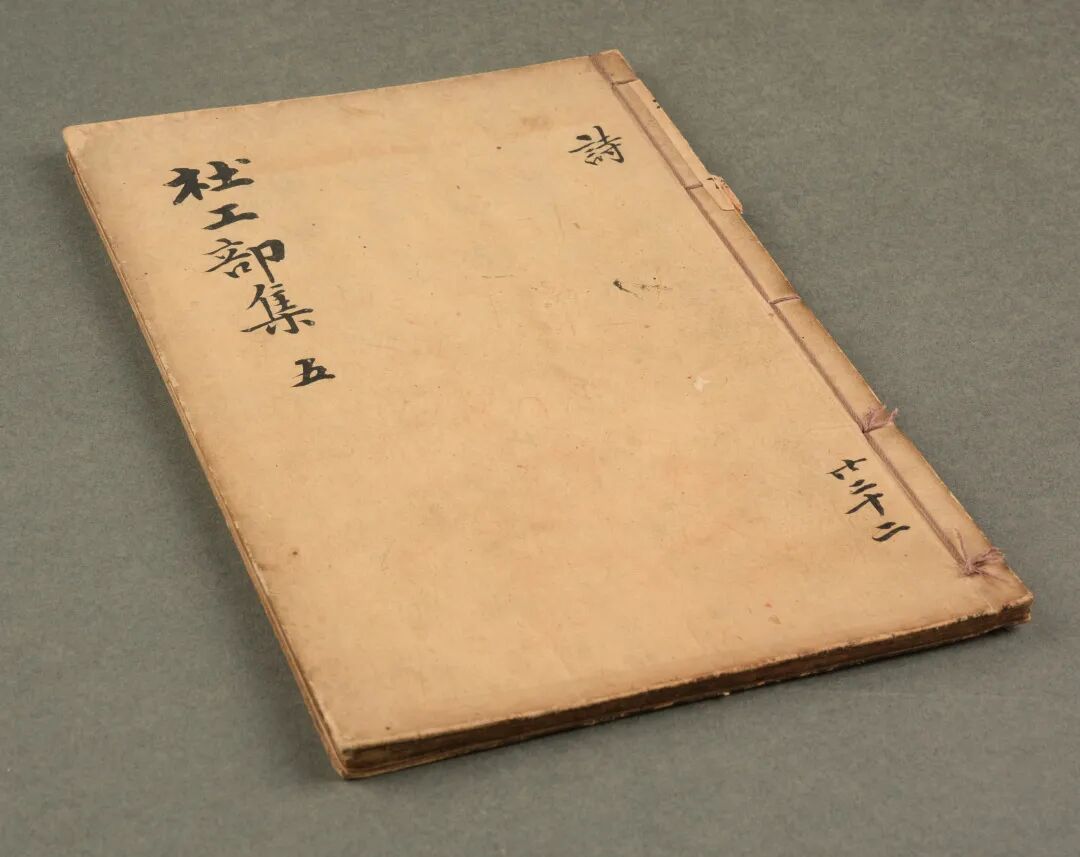 詩
二十二
杜工部集 五